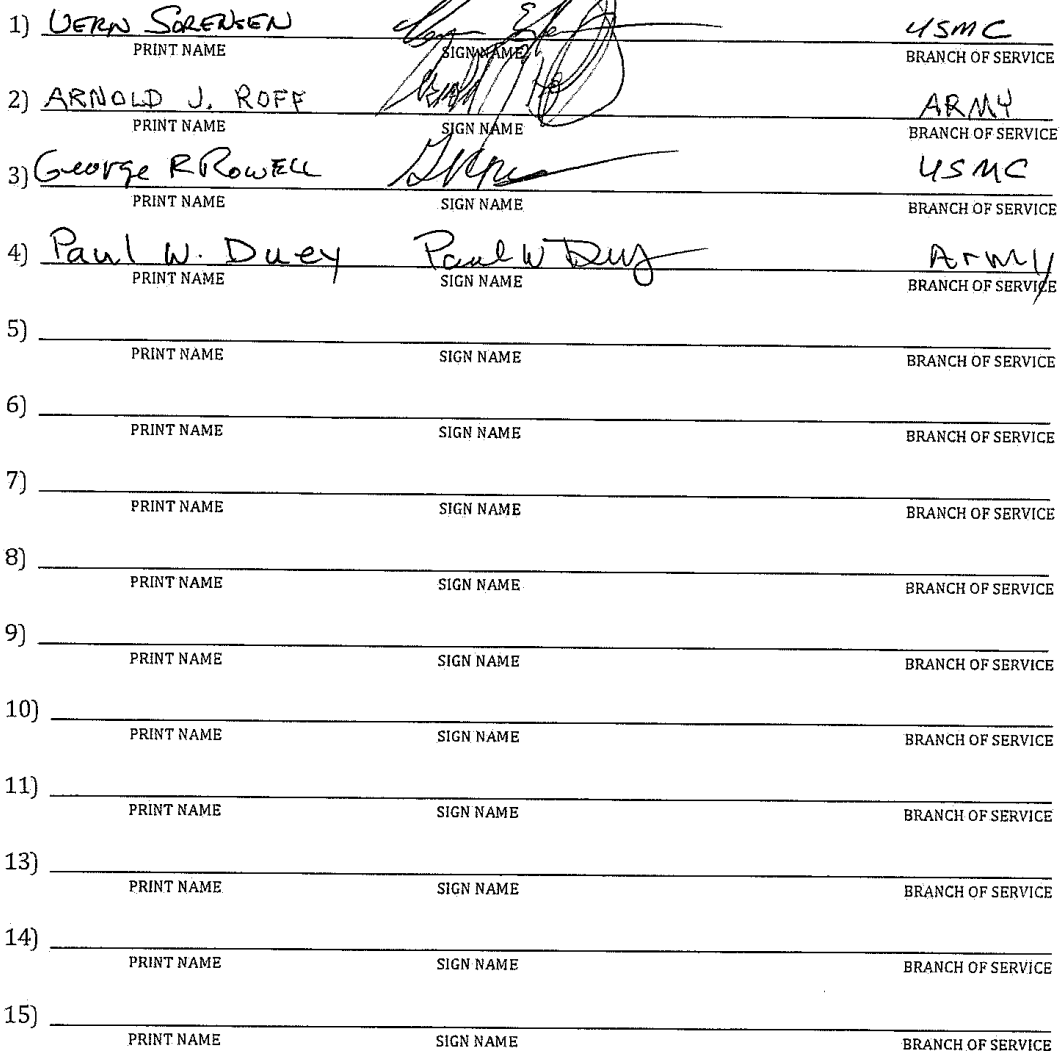 1) VERN SORENSEN USMC
PRINT NAME SIGN NAME BRANCH OF SERVICE
2) ARNOLD J. ROFF ARMY
PRINT NAME SIGN NAME BRANCH OF SERVICE
3) George R ROWELL USMC
PRINT NAME SIGN NAME BRANCH OF SERVICE
4) Paul W. Duey Paul W Duey Army
PRINT NAME SIGN NAME BRANCH OF SERVICE
5)
PRINT NAME SIGN NAME BRANCH OF SERVICE
6)
PRINT NAME SIGN NAME BRANCH OF SERVICE
7)
PRINT NAME SIGN NAME BRANCH OF SERVICE
8)
PRINT NAME SIGN NAME BRANCH OF SERVICE
9)
PRINT NAME SIGN NAME BRANCH OF SERVICE
10)
PRINT NAME SIGN NAME BRANCH OF SERVICE
11)
PRINT NAME SIGN NAME BRANCH OF SERVICE
13)
PRINT NAME SIGN NAME BRANCH OF SERVICE
14)
PRINT NAME SIGN NAME BRANCH OF SERVICE
15)
PRINT NAME SIGN NAME BRANCH OF SERVICE